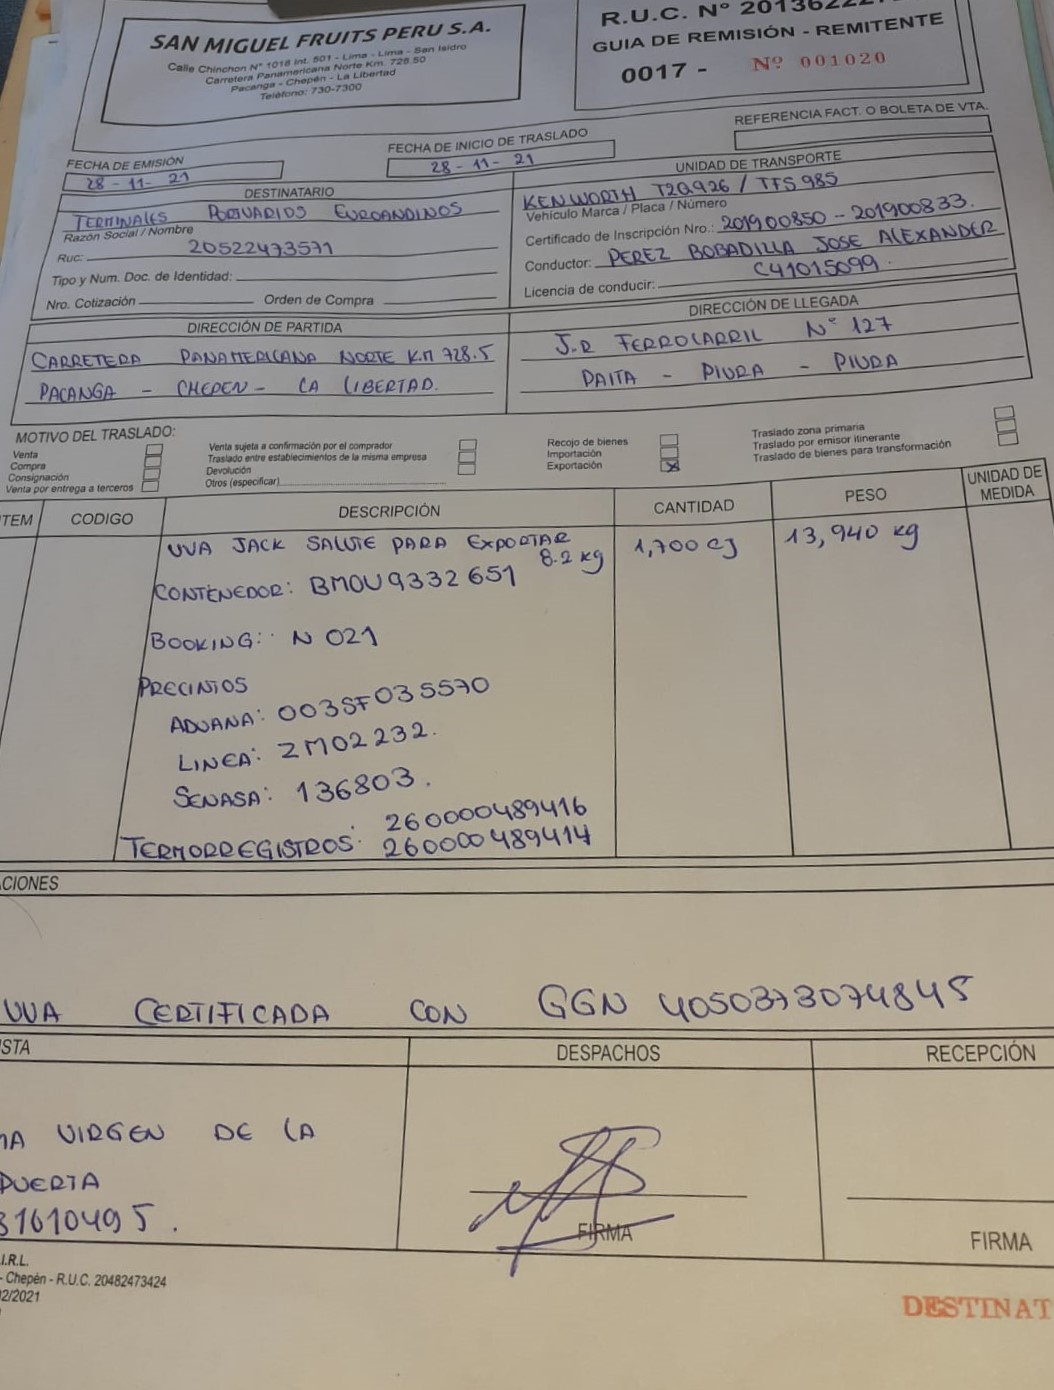 SAN MIGUEL FRUITS PERU S.A.
Calle Chinchon N° 1018 Int. 501 - Lima - Lima - San Isidro
Carretera Panamericana Norte Km. 728.50
Pacanga - Chepén - La Libertad
Teléfono: 730-7300
R.U.C. Nº
GUIA DE REMISIÓN - REMITENTE
0017 - Nº 001020
REFERENCIA FACT. O BOLETA DE VTA.
FECHA DE EMISIÓN
28 - 11 - 21
FECHA DE INICIO DE TRASLADO
28 - 11 - 21
DESTINATARIO
TERMINALES PORTUARIOS EUROANDINOS
Razón Social / Nombre
Ruc: 20522473571
Tipo y Num. Doc. de Identidad:
Nro. Cotización Orden de Compra
UNIDAD DE TRANSPORTE
KENWORTH T2Q926 / TFS 985
Vehículo Marca / Placa / Número
Certificado de Inscripción Nro.: 201900850 - 201900833.
Conductor: PEREZ BOBADILLA JOSE ALEXANDER
Licencia de conducir: C41015099.
DIRECCIÓN DE PARTIDA
CARRETERA PANAMERICANA NORTE KM 728.5
PACANGA - CHEPEN - LA LIBERTAD.
DIRECCIÓN DE LLEGADA
J.R FERROCARRIL N° 127
PAITA - PIURA - PIURA
MOTIVO DEL TRASLADO:
Venta
Compra
Consignación
Venta por entrega a terceros
Venta sujeta a confirmación por el comprador
Traslado entre establecimientos de la misma empresa
Devolución
Otros (especificar)
Recojo de bienes
Importación
Exportación X
Traslado zona primaria
Traslado por emisor itinerante
Traslado de bienes para transformación
TEM CODIGO DESCRIPCIÓN CANTIDAD PESO UNIDAD DE MEDIDA
UVA JACK SALUTE PARA EXPORTAR 1,700 CJ 13,940 kg
8.2 kg
CONTENEDOR: BMOU9332651
BOOKING: N 021
PRECINTOS
ADUANA: 003SF035570
LINEA: ZM02232.
SENASA: 136803.
TERMORREGISTROS: 260000489416
260000489414
ACIONES
UVA CERTIFICADA CON GGN 4050373074845
ISTA DESPACHOS RECEPCIÓN
MA VIRGEN DE LA
PUERTA
31610495.
FIRMA
FIRMA
I.R.L.
- Chepén - R.U.C. 20482473424
02/2021
DESTINAT